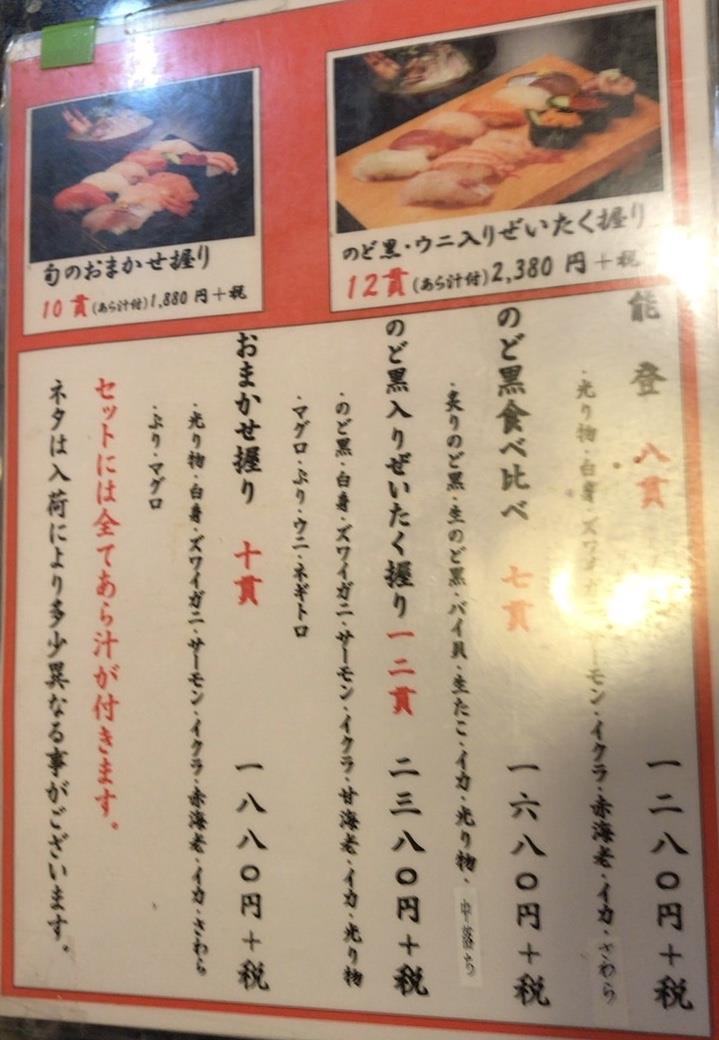 旬のおまかせ握り
10貫(あら汁付)1,880円＋税
のど黒・ウニ入りぜいたく握り
12貫(あら汁付)2,380円＋税
能登 八貫 一二八〇円＋税
・光り物・白身・ズワイガニ・サーモン・イクラ・赤海老・イカ・さわら
のど黒食べ比べ 七貫 一六八〇円＋税
・炙りのど黒・生のど黒・バイ貝・生たこ・イカ・光り物・中落ち
のど黒入りぜいたく握り 一二貫 二三八〇円＋税
・のど黒・白身・ズワイガニ・サーモン・イクラ・甘海老・イカ・光り物
・マグロ・ぶり・ウニ・ネギトロ
おまかせ握り 十貫 一八八〇円＋税
・光り物・白身・ズワイガニ・サーモン・イクラ・赤海老・イカ・さわら
・ぶり・マグロ
セットには全てあら汁が付きます。
ネタは入荷により多少異なる事がございます。